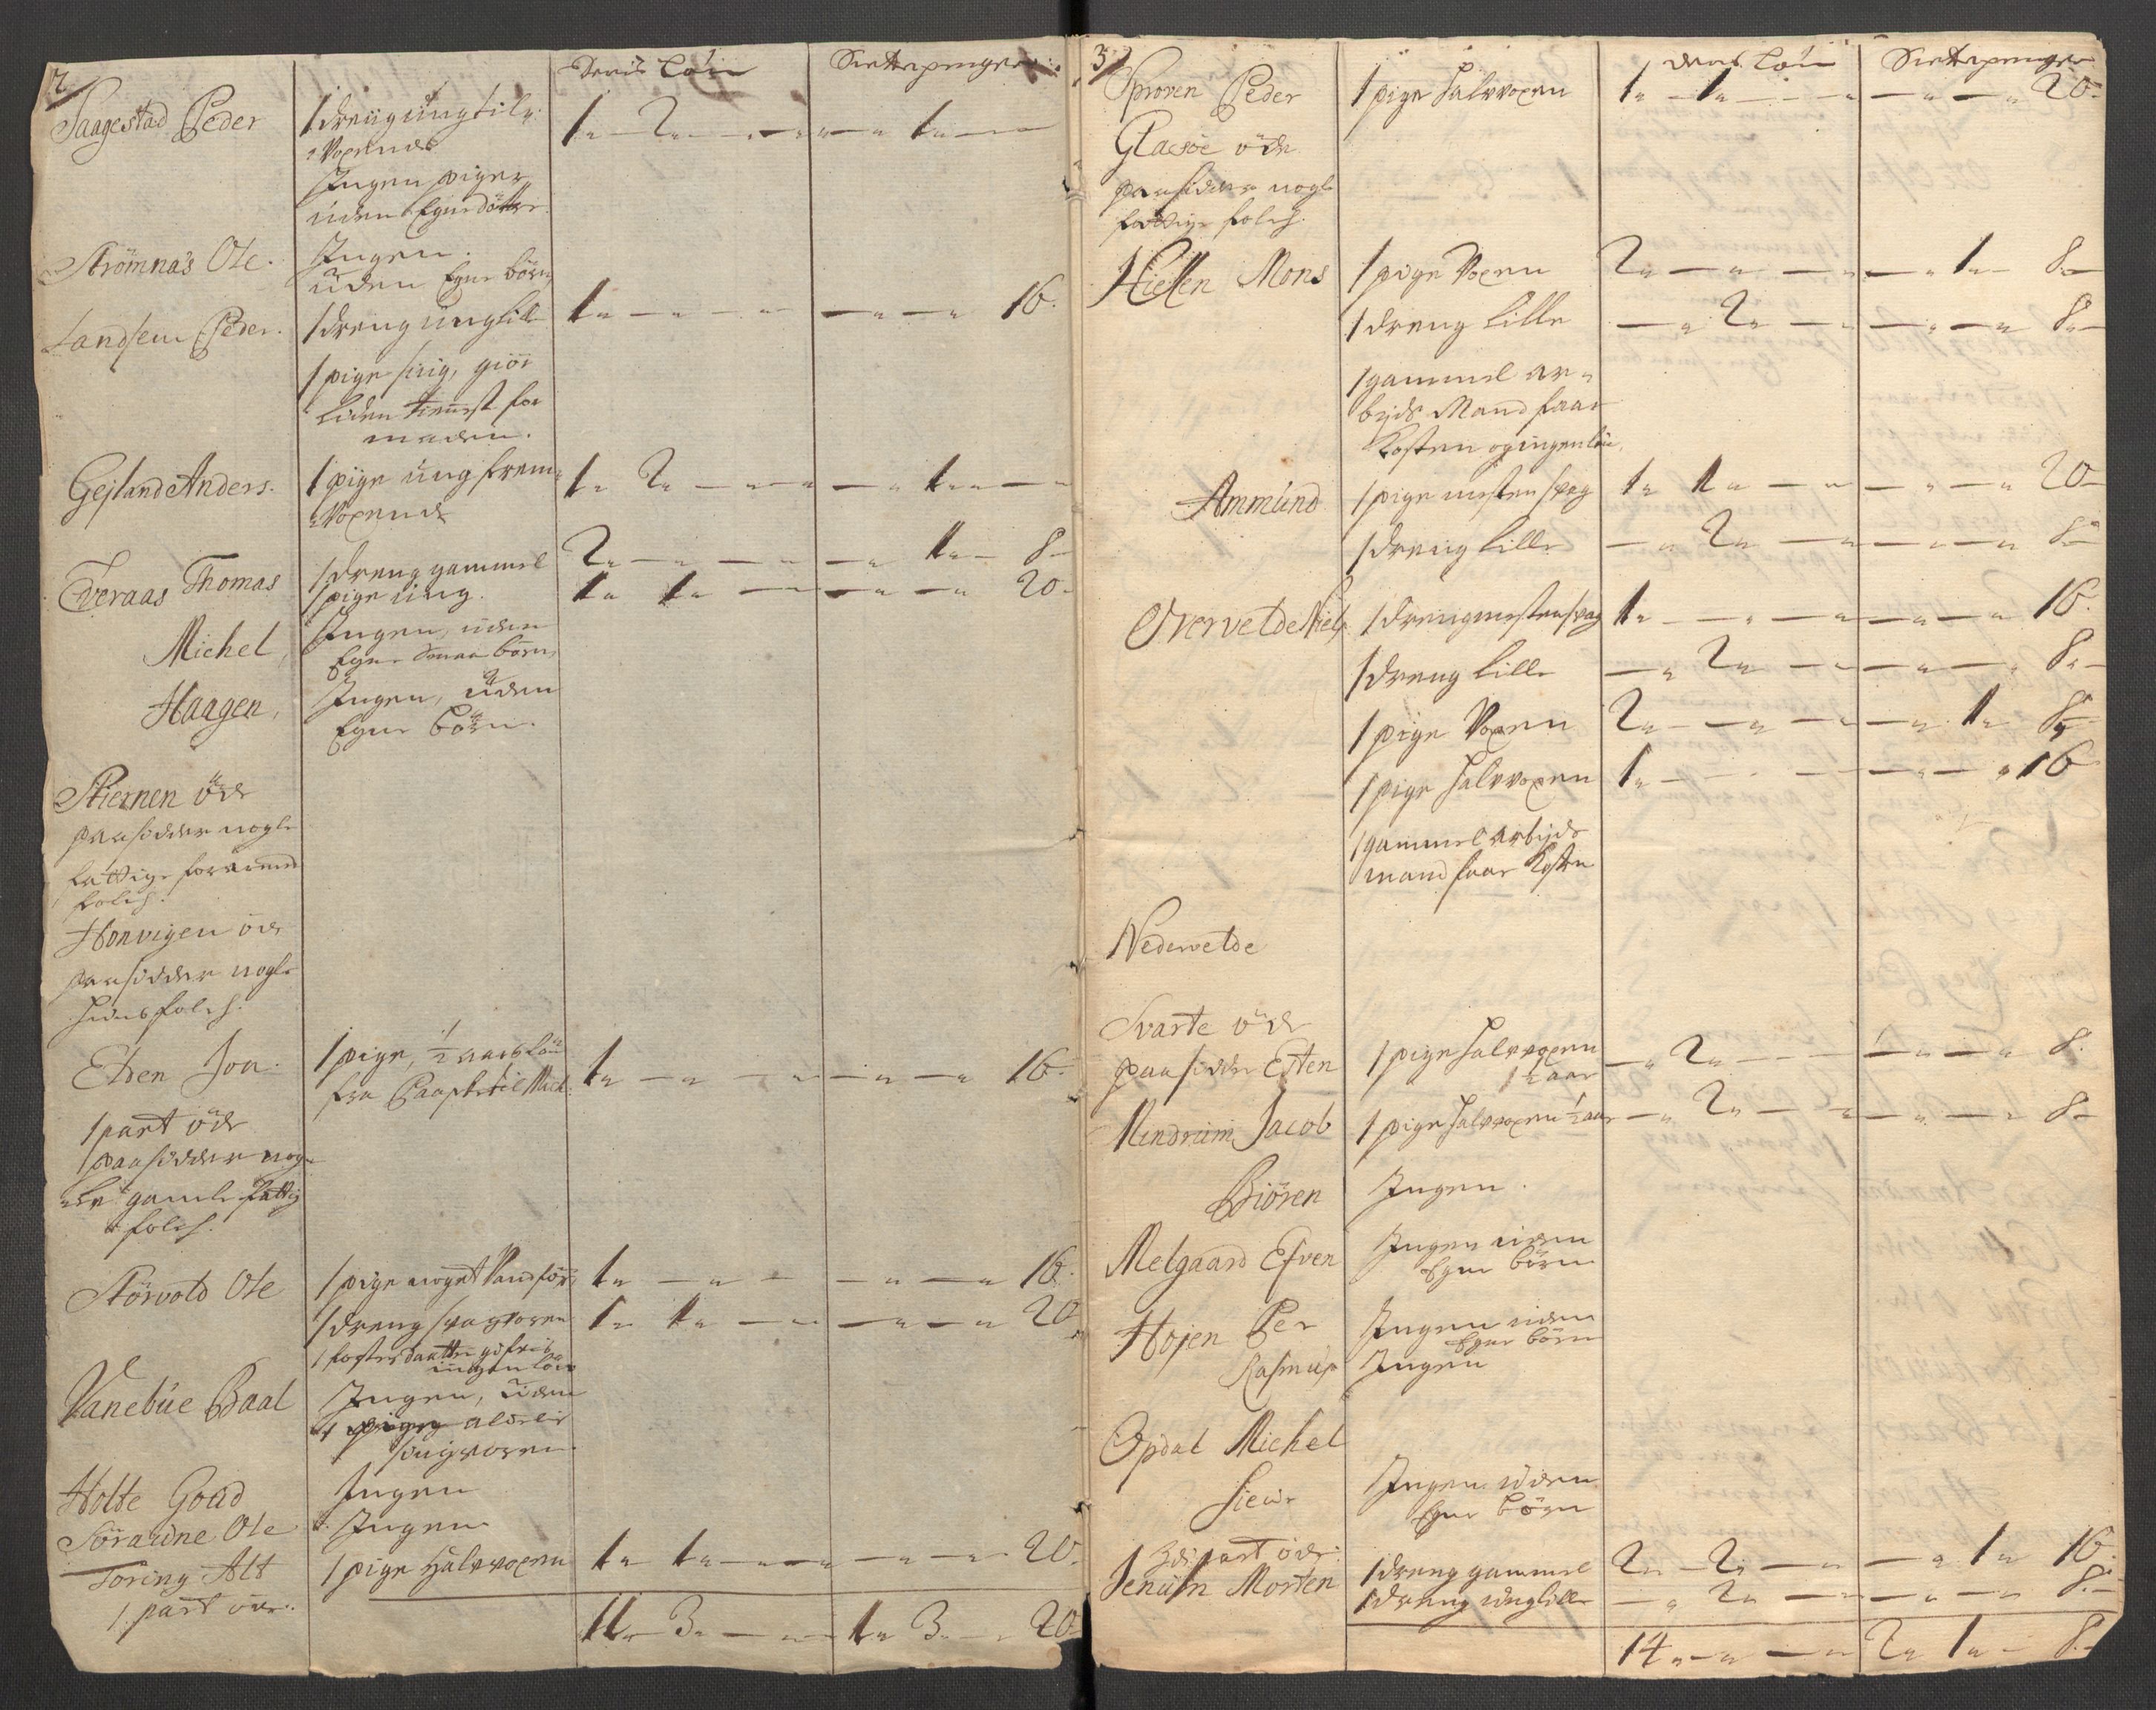 2
Deris Løn Sættepenger
Saagestad Peder 1 dreng ung til 1" 2" — " — " 1" —
voxende
Ingen piger
uden Egne døttre
Strömnäs Ole. Ingen.
uden Egne börn
Landsem Peder. 1 dreng ung lille 1" — " — " — " — " 16.
1 pige siug, giör
liden tienest for
maden.
Gejland Anders. 1 pige ung frem 1" 2" — " — " 1" — "
voxende
Tveraas Thomas 1 dreng gammel 2" — " — " — " 1" — 8 —
1 pige ung. 1" 1" — " — " — " 20.
Michel, Ingen, uden
Egne smaa börn,
Haagen, Ingen, uden
Egne börn.
Stiernen öde
paasidder nogle
fattige forarmed
folch.
Honvigen öde
paasidder nogle
huusfolch.
Elden Jon. 1 pige, ½ aars løn 1" — " — " — " — " 16.
fra Paaske til Mich.
1 part öde
paasidder nog
le gamle fattig
folch.
Störvold Ole 1 pige noget Vandför 1" — " — " — " — " 16.
1 dreng svagvoxen 1" 1" — " — " — " 20
1 fosterdaatter
ingen løn
Vanebüe Baal Ingen, uden
1 alderlis
siugvoxen.
Holte Goud Ingen
Söraune Ole Ingen
Toring Alt 1 pige halvvoxen 1" 1" — " — " — " 20.
1. part öde.
11" 3" — " 1" 3" — " 20
3
deris Løn Sættepenger
Sproven Peder 1 pige halvvoxen 1" 1" — " — " — " 20 —
Glasøe öde
paasidder nogle
fattige folch.
Hiellen Mons 1 pige Voxen 2" — " — " — " 1" — 8 —
1 dreng lille — " 2" — " — " — " 8 —
1 gammel ar
bejds Mand faar
Kosten og ingen løn.
Ammund 1 pige mesten svag 1" 1" — " — " — " 20 —
1 dreng lille — " 2" — " — " — " 8 —
Overvelde Niels 1 dreng mesten svag 1" — " — " — " — " 16.
1 dreng lille — " 2" — " — " — " 8 —
1 pige Voxen 2" — " — " — " 1" 8 —
1 pige halvvoxen 1" — " — " — " — " 16
1 gammel arbejds
mand faar Kosten
Nedervelde
Svarte öde
paasidder Esten 1 pige halvvoxen — " 2" — " — " — " 8.
½ aar
Mindrum Jacob 1 pige halvvoxen ½ aar — " 2" — " — " — " 8 —
Biören Ingen.
Melgaard Efven Ingen uden
Egne börn
Hojen Per Ingen uden
Egne börn
Rasmus Ingen
Opdal Michel
Siew Ingen uden
Egne börn
3die part öde.
Jenum Morten 1 dreng gammel 2" 2" — " — " 1" 16.
1 dreng ung lille — " 2" — " — " — " 8 —
14" — " — " 2" 1" — 8 —